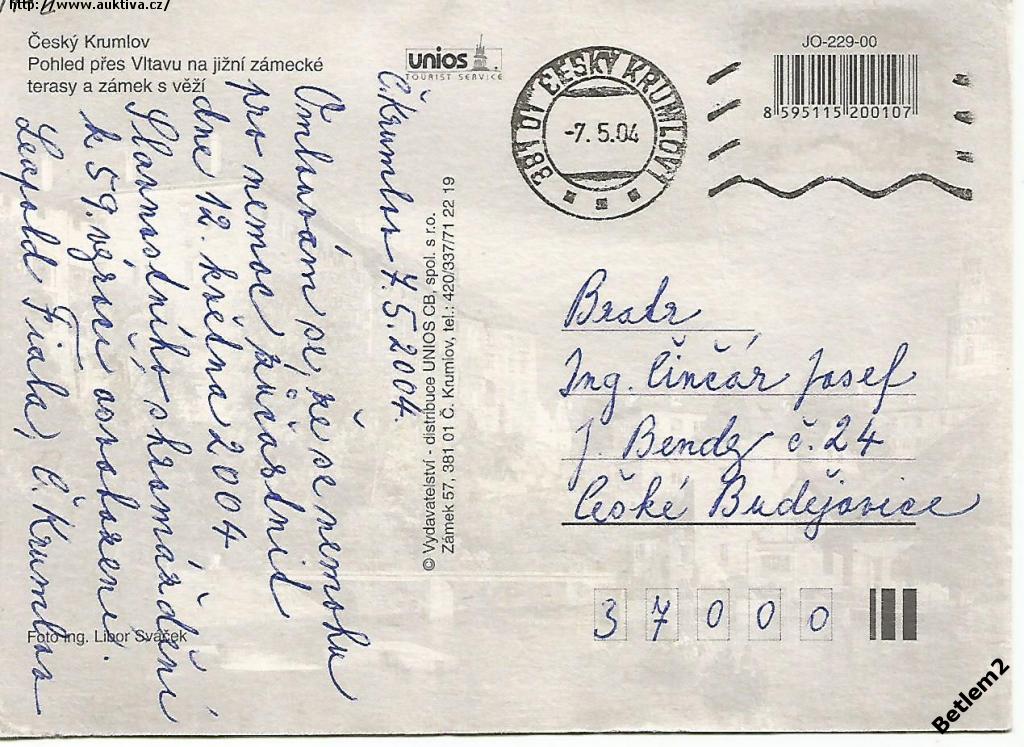 http://www.auktiva.cz/
Český Krumlov
Pohled přes Vltavu na jižní zámecké
terasy a zámek s věží
unios
TOURIST SERVICE
381 01 ČESKÝ KRUMLOV 1
-7.5.04
JO-229-00
8 595115 200107
Č. Krumlov 7.5.2004.
Omluvám se, že se nemohu
pro nemoc zůčastnit
dne 12. května 2004
Slavnostního shromáždění
k 59. výročí osvobození.
Leopold Fiala, Č. Krumlov
© Vydavatelství - distribuce UNIOS CB, spol. s r.o.
Zámek 57, 381 01 Č. Krumlov, tel.: 420/337/71 22 19
Bratr
Ing. Činčár Josef
J. Bendy č. 24
České Budějovice
37000
Foto Ing. Libor Sváček
Betlem2